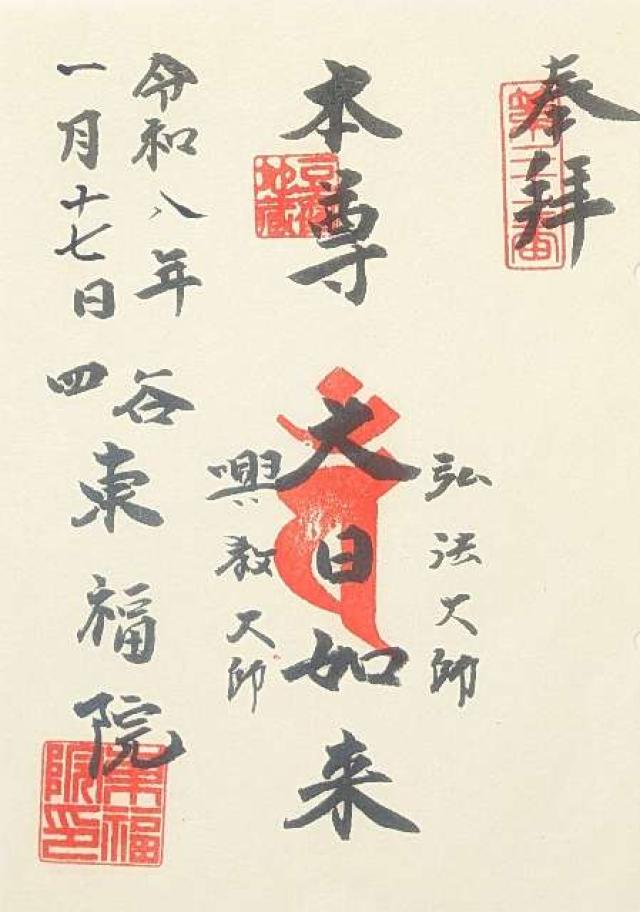 奉拝
弘法大師
本尊 大日如来
豆腐地蔵
興教大師
令和八年
一月十七日
四谷
東福院
東福院印